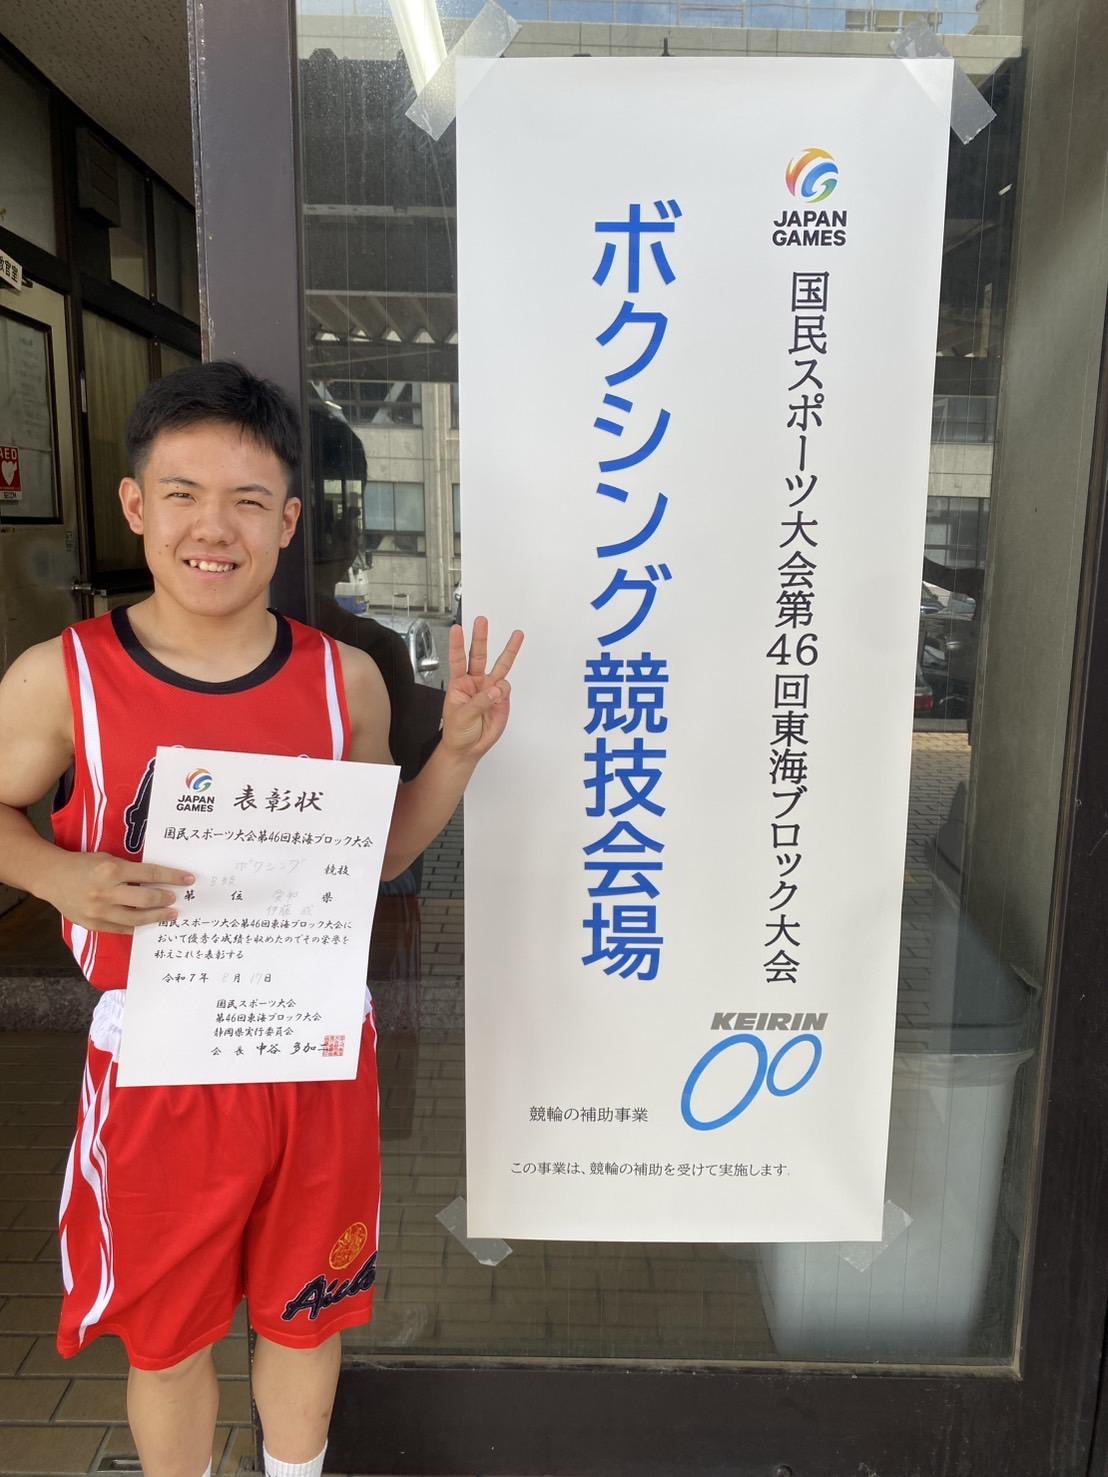 JAPAN
GAMES
国民スポーツ大会第46回東海ブロック大会
ボクシング競技会場
KEIRIN
競輪の補助事業
この事業は、競輪の補助を受けて実施します.
教官室
AED
JAPAN
GAMES
表彰状
国民スポーツ大会第46回東海ブロック大会
ボクシング 競技
第 位 愛知 県
伊藤
国民スポーツ大会第46回東海ブロック大会に
おいて優秀な成績を収めたのでその栄誉を
称えこれを表彰する
令和7年 8月 17日
国民スポーツ大会
第46回東海ブロック大会
静岡県実行委員会
会長 中谷 多加二